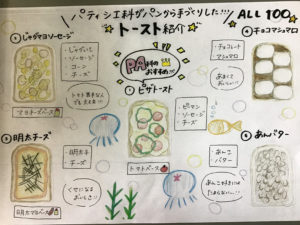 パティシエ科がパンから手づくりした!!!
ALL100
トースト紹介
PA科のおすすめ!!!
① じゃがマヨソーセージ
・じゃがいも
・ソーセージ
・コーン
・チーズ
マヨネーズベース
② ピザトースト
・ピーマン
・ソーセージ
・チーズ
トマトベース
③ 明太チーズ
・明太子
・チーズ
くせになるおいしさ!!
明太マヨベース
④ チョコマシュマロ
・チョコレート
・マシュマロ
あまくておいしい!
⑤ あんバター
・あんこ
・バター